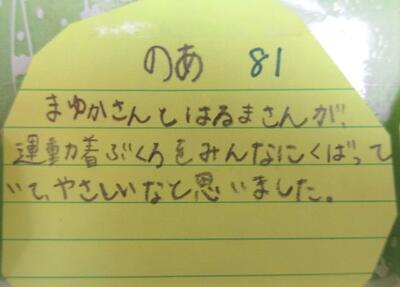 のあ 81
まゆかさんとはるまさんが、
運動着ぶくろをみんなにくばって
いて、やさしいなと思いました。